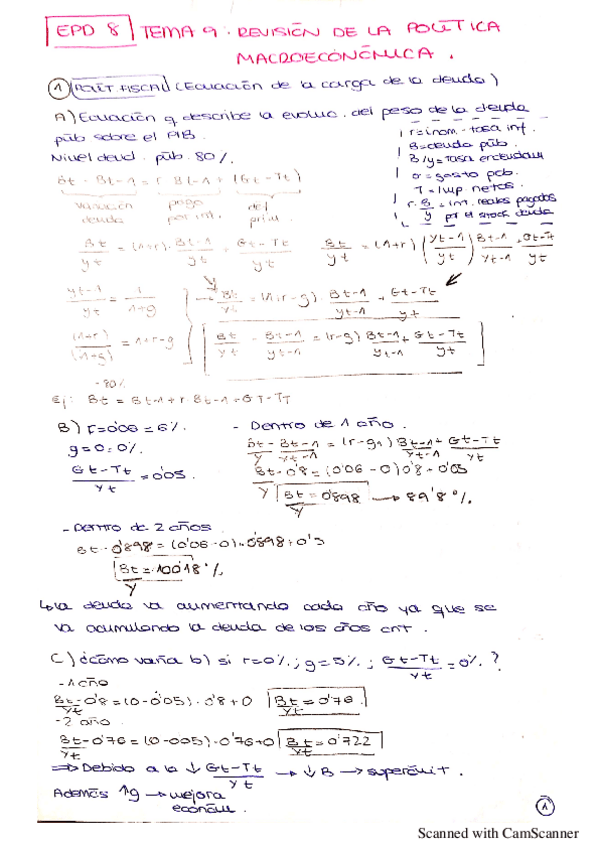 EPD 8 TEMA 9: REVISIÓN DE LA POLÍTICA
MACROECONÓMICA.
① POLÍT FISCAL (Ecuación de la carga de la deuda)
A) Ecuación q describe la evoluc. del peso de la deuda
púb sobre el PIB.
Nivel deud. púb. 80%.
r = inom - tasa inf.
B = deuda púb.
B/y = Tasa endeudam
G = gasto pcb.
T = Imp netos.
r. B/y = int. reales pagados
por el stock deuda
Bt - Bt-1 = r Bt-1 + (Gt-Tt)
variación deuda
pago por int.
def prim.
Bt/yt = (1+r) · Bt-1/yt + Gt-Tt/yt
Bt/yt = (1+r) (yt-1/yt) Bt-1/yt-1 + Gt-Tt/yt
yt-1/yt = 1/1+g
Bt/yt = (1+r-g) Bt-1/yt-1 + Gt-Tt/yt
(1+r)/(1+g) = 1+r-g
Bt/yt - Bt-1/yt-1 = (r-g) Bt-1/yt-1 + Gt-Tt/yt
-80%
Ej: Bt = Bt-1 + r · Bt-1 + GT-TT
B) r=0'06 = 6%.
g = 0 = 0%.
Gt-Tt/yt = 0'05
- Dentro de 1 año.
Bt/Y - Bt-1/Yt-1 = (r-g) Bt-1/Yt-1 + Gt-Tt/yt
Bt/Y - 0'8 = (0'06 - 0) 0'8 + 0'05
Bt/Y = 0'898 → 89'8%
- Dentro de 2 años.
Bt/Y = 100'18%
↳ la deuda va aumentando cada año ya que se
va acumulando la deuda de los años ant.
C) ¿cómo varía b) si r=0%.; g=5%.; Gt-Tt/yt = 0%.?
- 1 año
Bt/yt - 0'8 = (0-0'05) · 0'8 + 0 Bt/yt = 0'76.
- 2 año.
Bt/yt - 0'76 = (0-005) · 0'76 + 0 Bt/yt = 0'722
⇒ Debido a la ↓ Gt-Tt/yt → ↓ B → superávit.
Además ↑g → mejora
económ.
1
Scanned with CamScanner